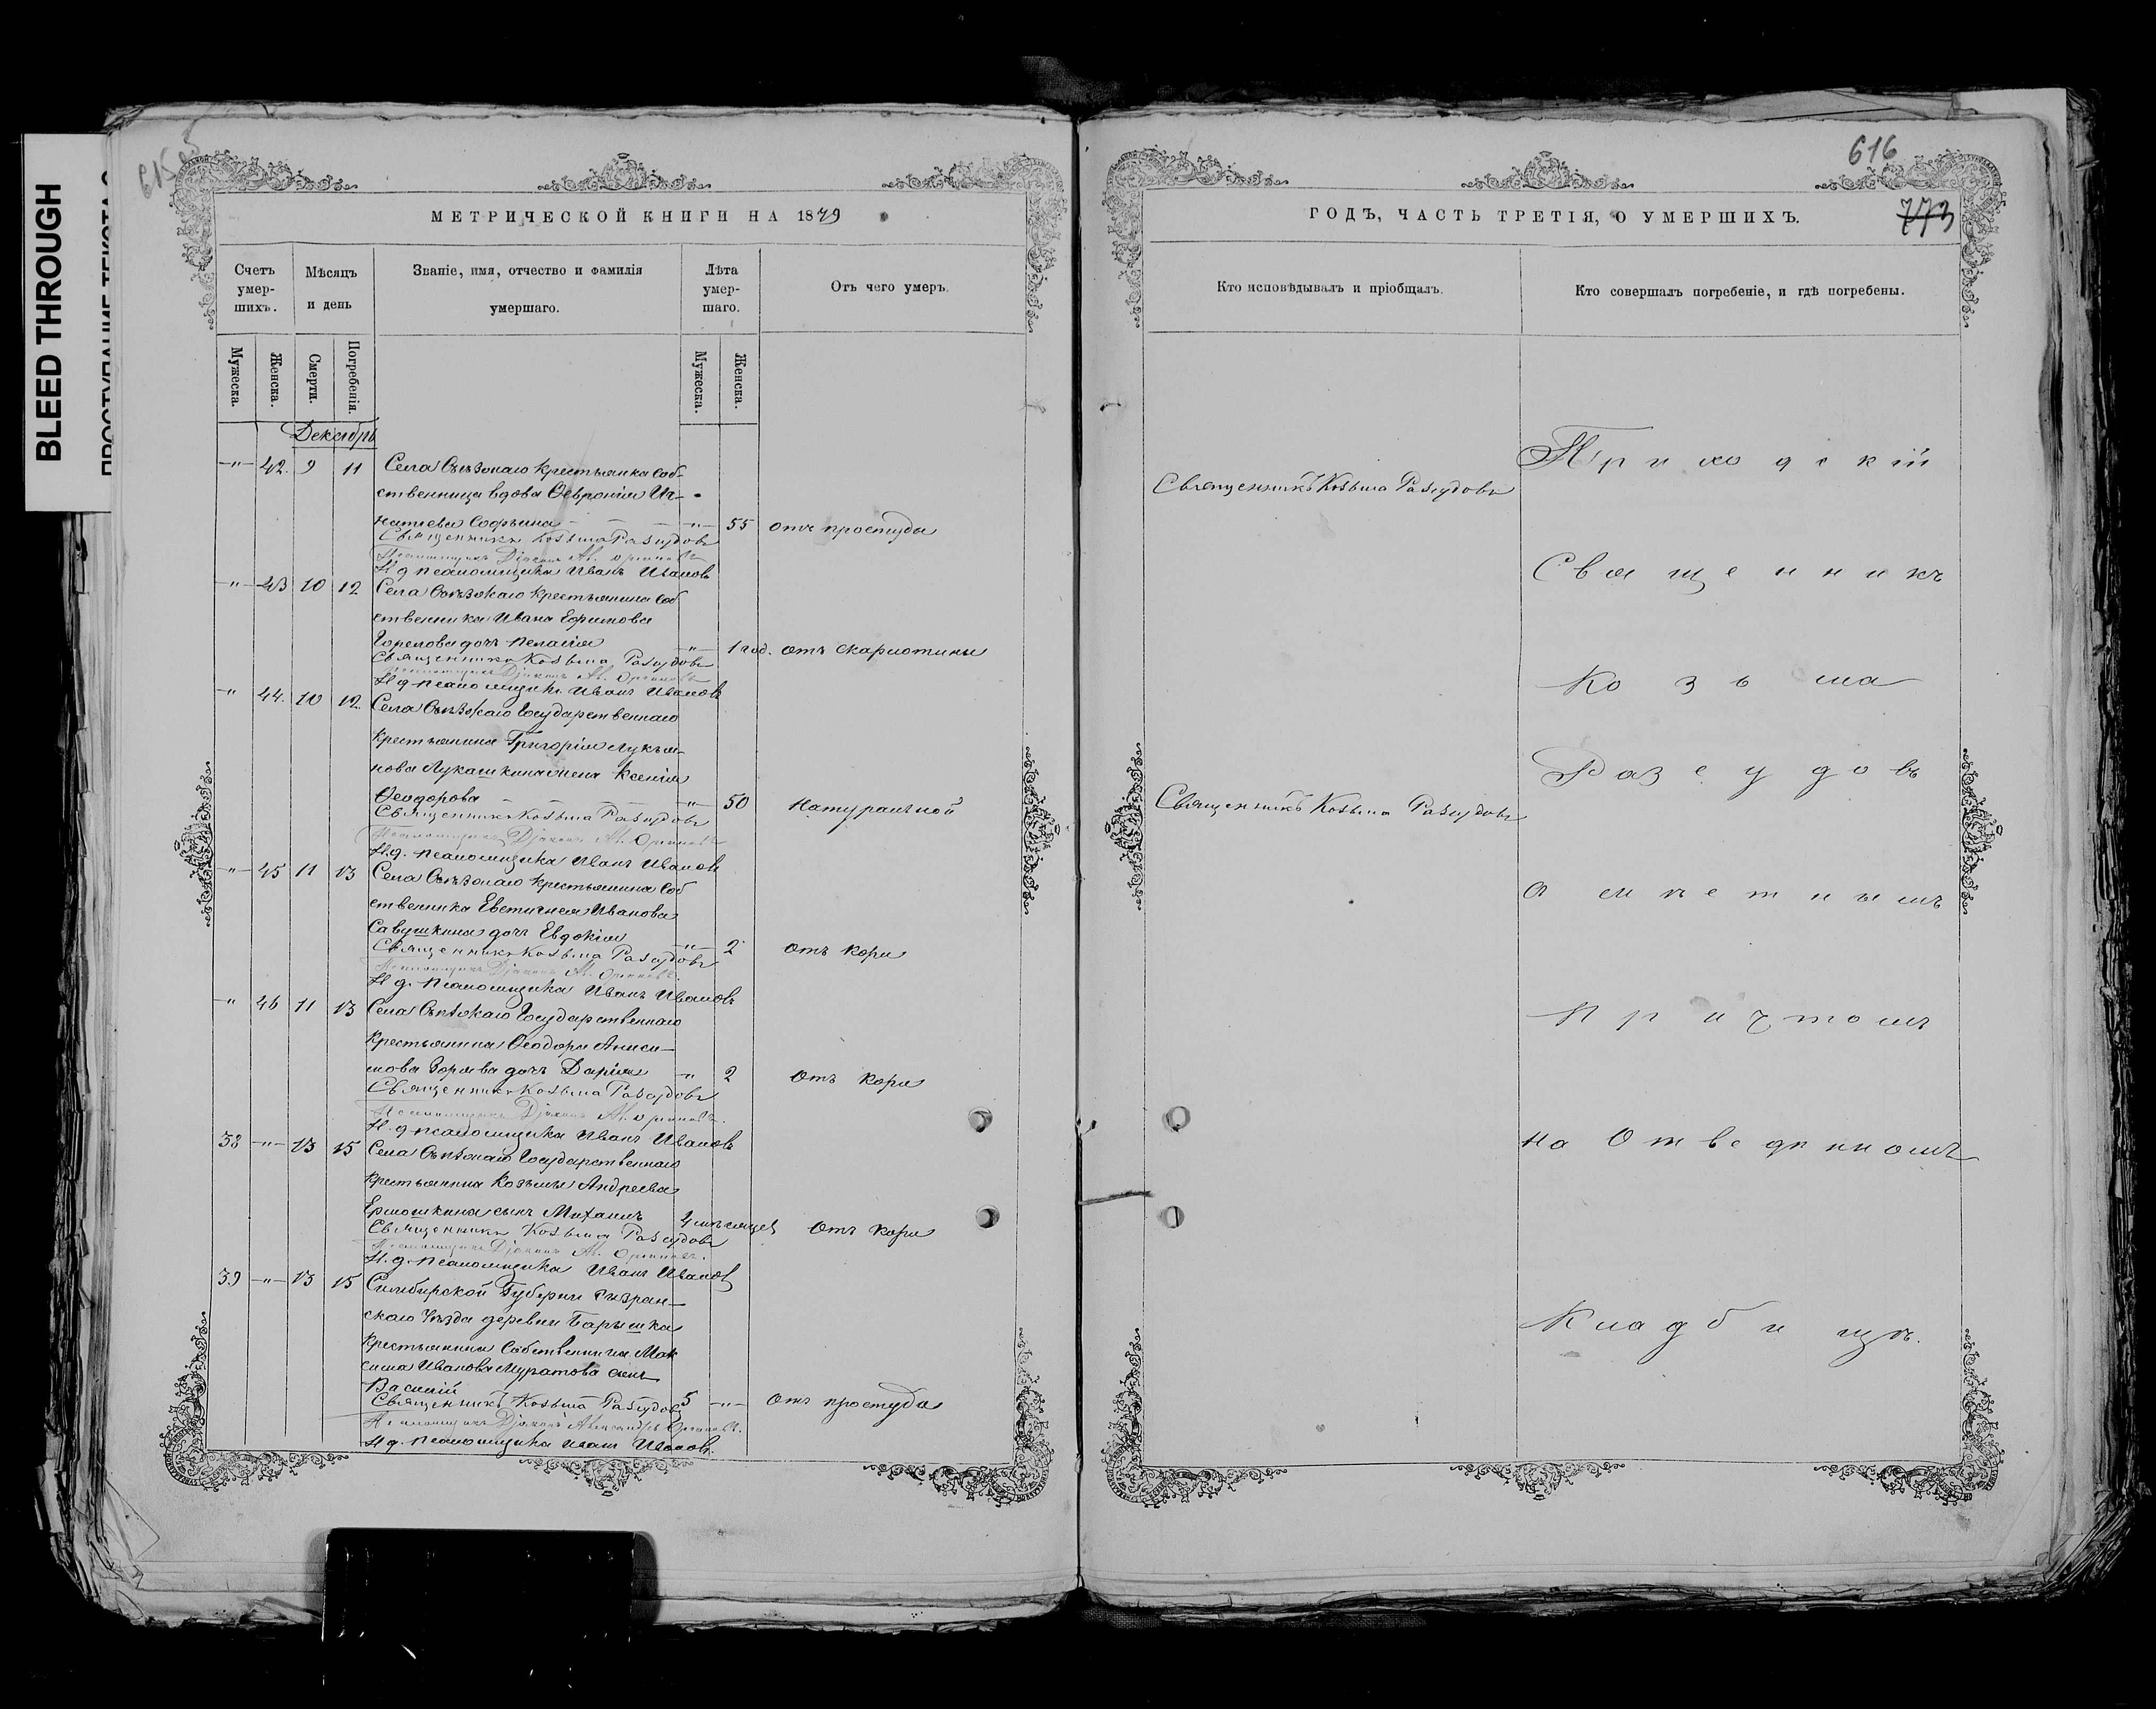 BLEED THROUGH
615
МЕТРИЧЕСКОЙ КНИГИ НА 1879
Счетъ умер-шихъ.
Мѣсяцъ и день
Званіе, имя, отчество и фамилія умершаго.
Лѣта умер-шаго.
Отъ чего умеръ.
Мужеска.
Женска.
Смерти.
Погребенія.
Мужеска.
Женска.
Декабрь
-"- 42. 9 11 Села Съѣзжаго крестьянка соб-
ственница вдова Ѳевронія Иг-
натьева Софьина -"- 55 отъ простуды
Священникъ Козьма Разсудовъ
Псаломщикъ Діаконъ Ал.
И д псаломщика Иванъ Ивановъ
-"- 43 10 12 Села Съѣзжаго крестьянина соб
ственника Ивана Ефимова
Горелова дочь Пелагія -"- 1 год. отъ скарлотины
Священникъ Козьма Разсудовъ
Псаломщикъ Діаконъ Ал.
И д псаломщика Иванъ Ивановъ
" 44. 10 12. Села Съѣзжаго Государственнаго
крестьянина Григорія Лукья-
нова Лукашкина жена Ксенія
Ѳеодорова -"- 50 натуральной
Священникъ Козьма Разсудовъ
Псаломщикъ Діаконъ Ал.
И.д. псаломщика Иванъ Ивановъ
-"- 45 11 13 Села Съѣзжаго крестьянина соб
ственника Евтигнея Иванова
Савушкина дочь Евдокія -"- 2 отъ кори
Священникъ Козьма Разсудовъ
Псаломщикъ Діаконъ Ал.
И д. псаломщика Иванъ Ивановъ
-" 46 11 13 Села Съѣзжаго Государственнаго
крестьянина Ѳеодора Аниси-
мова Зорива дочь Дарія -"- 2 отъ кори
Священникъ Козьма Разсудовъ
Псаломщикъ Діаконъ Ал.
И. д псаломщика Иванъ Ивановъ
38 -"- 13 15 Села Съѣзжаго Государственнаго
крестьянина Козьмы Андреева
Ермошкина сынъ Михаилъ 4 мѣсяцев отъ кори
Священникъ Козьма Разсудовъ
Псаломщикъ Діаконъ Ал.
И. д. псаломщика Иванъ Ивановъ
39 -"- 13 15 Симбирской Губерни Сызран-
скаго Уѣзда деревни Барышка
крестьянина Собственника Мак
сима Иванова Муратова сынъ
Василій 5 -"- отъ простуды
Священникъ Козьма Разсудовъ
Псаломщикъ Діаконъ Александръ
И д. псаломщика Иванъ Ивановъ.
616
773
ГОДЪ, ЧАСТЬ ТРЕТІЯ, О УМЕРШИХЪ.
Кто исповѣдывалъ и пріобщалъ.
Кто совершалъ погребеніе, и гдѣ погребены.
Священникъ Козьма Разсудовъ
Священникъ Козьма Разсудовъ
Приходскій
Священникъ
Козьма
Разсудовъ
съ мѣстнымъ
Причтомъ
на Отведенномъ
Кладбищѣ.